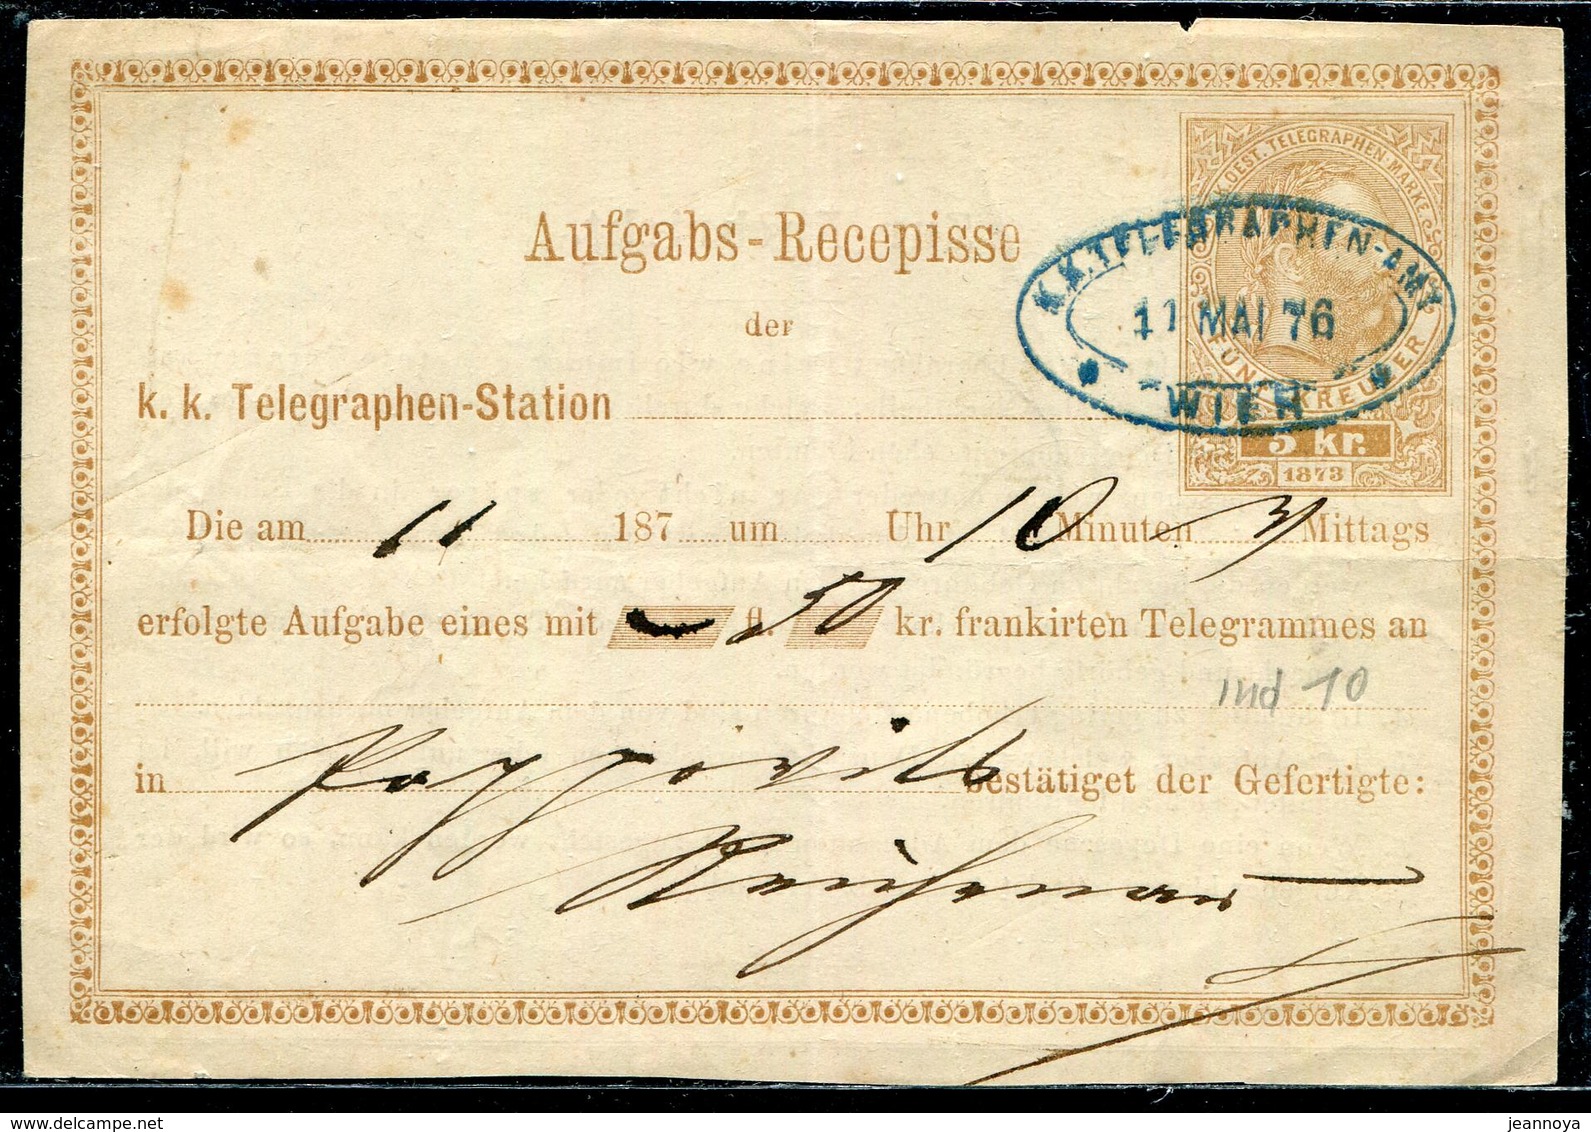 K. OEST. TELEGRAPHEN-MARKE
Aufgabs-Recepisse
K.K. TELEGRAPHEN-AMT
der
11 MAI 76
FÜNF KREUZER
k. k. Telegraphen-Station
WIEN
5 kr.
1873
Die am 11 187 um Uhr 10 Minuten Mittags
erfolgte Aufgabe eines mit – fl. 50 kr. frankirten Telegrammes an
10
in bestätiget der Gefertigte:
www.delcampe.net
jeannoya